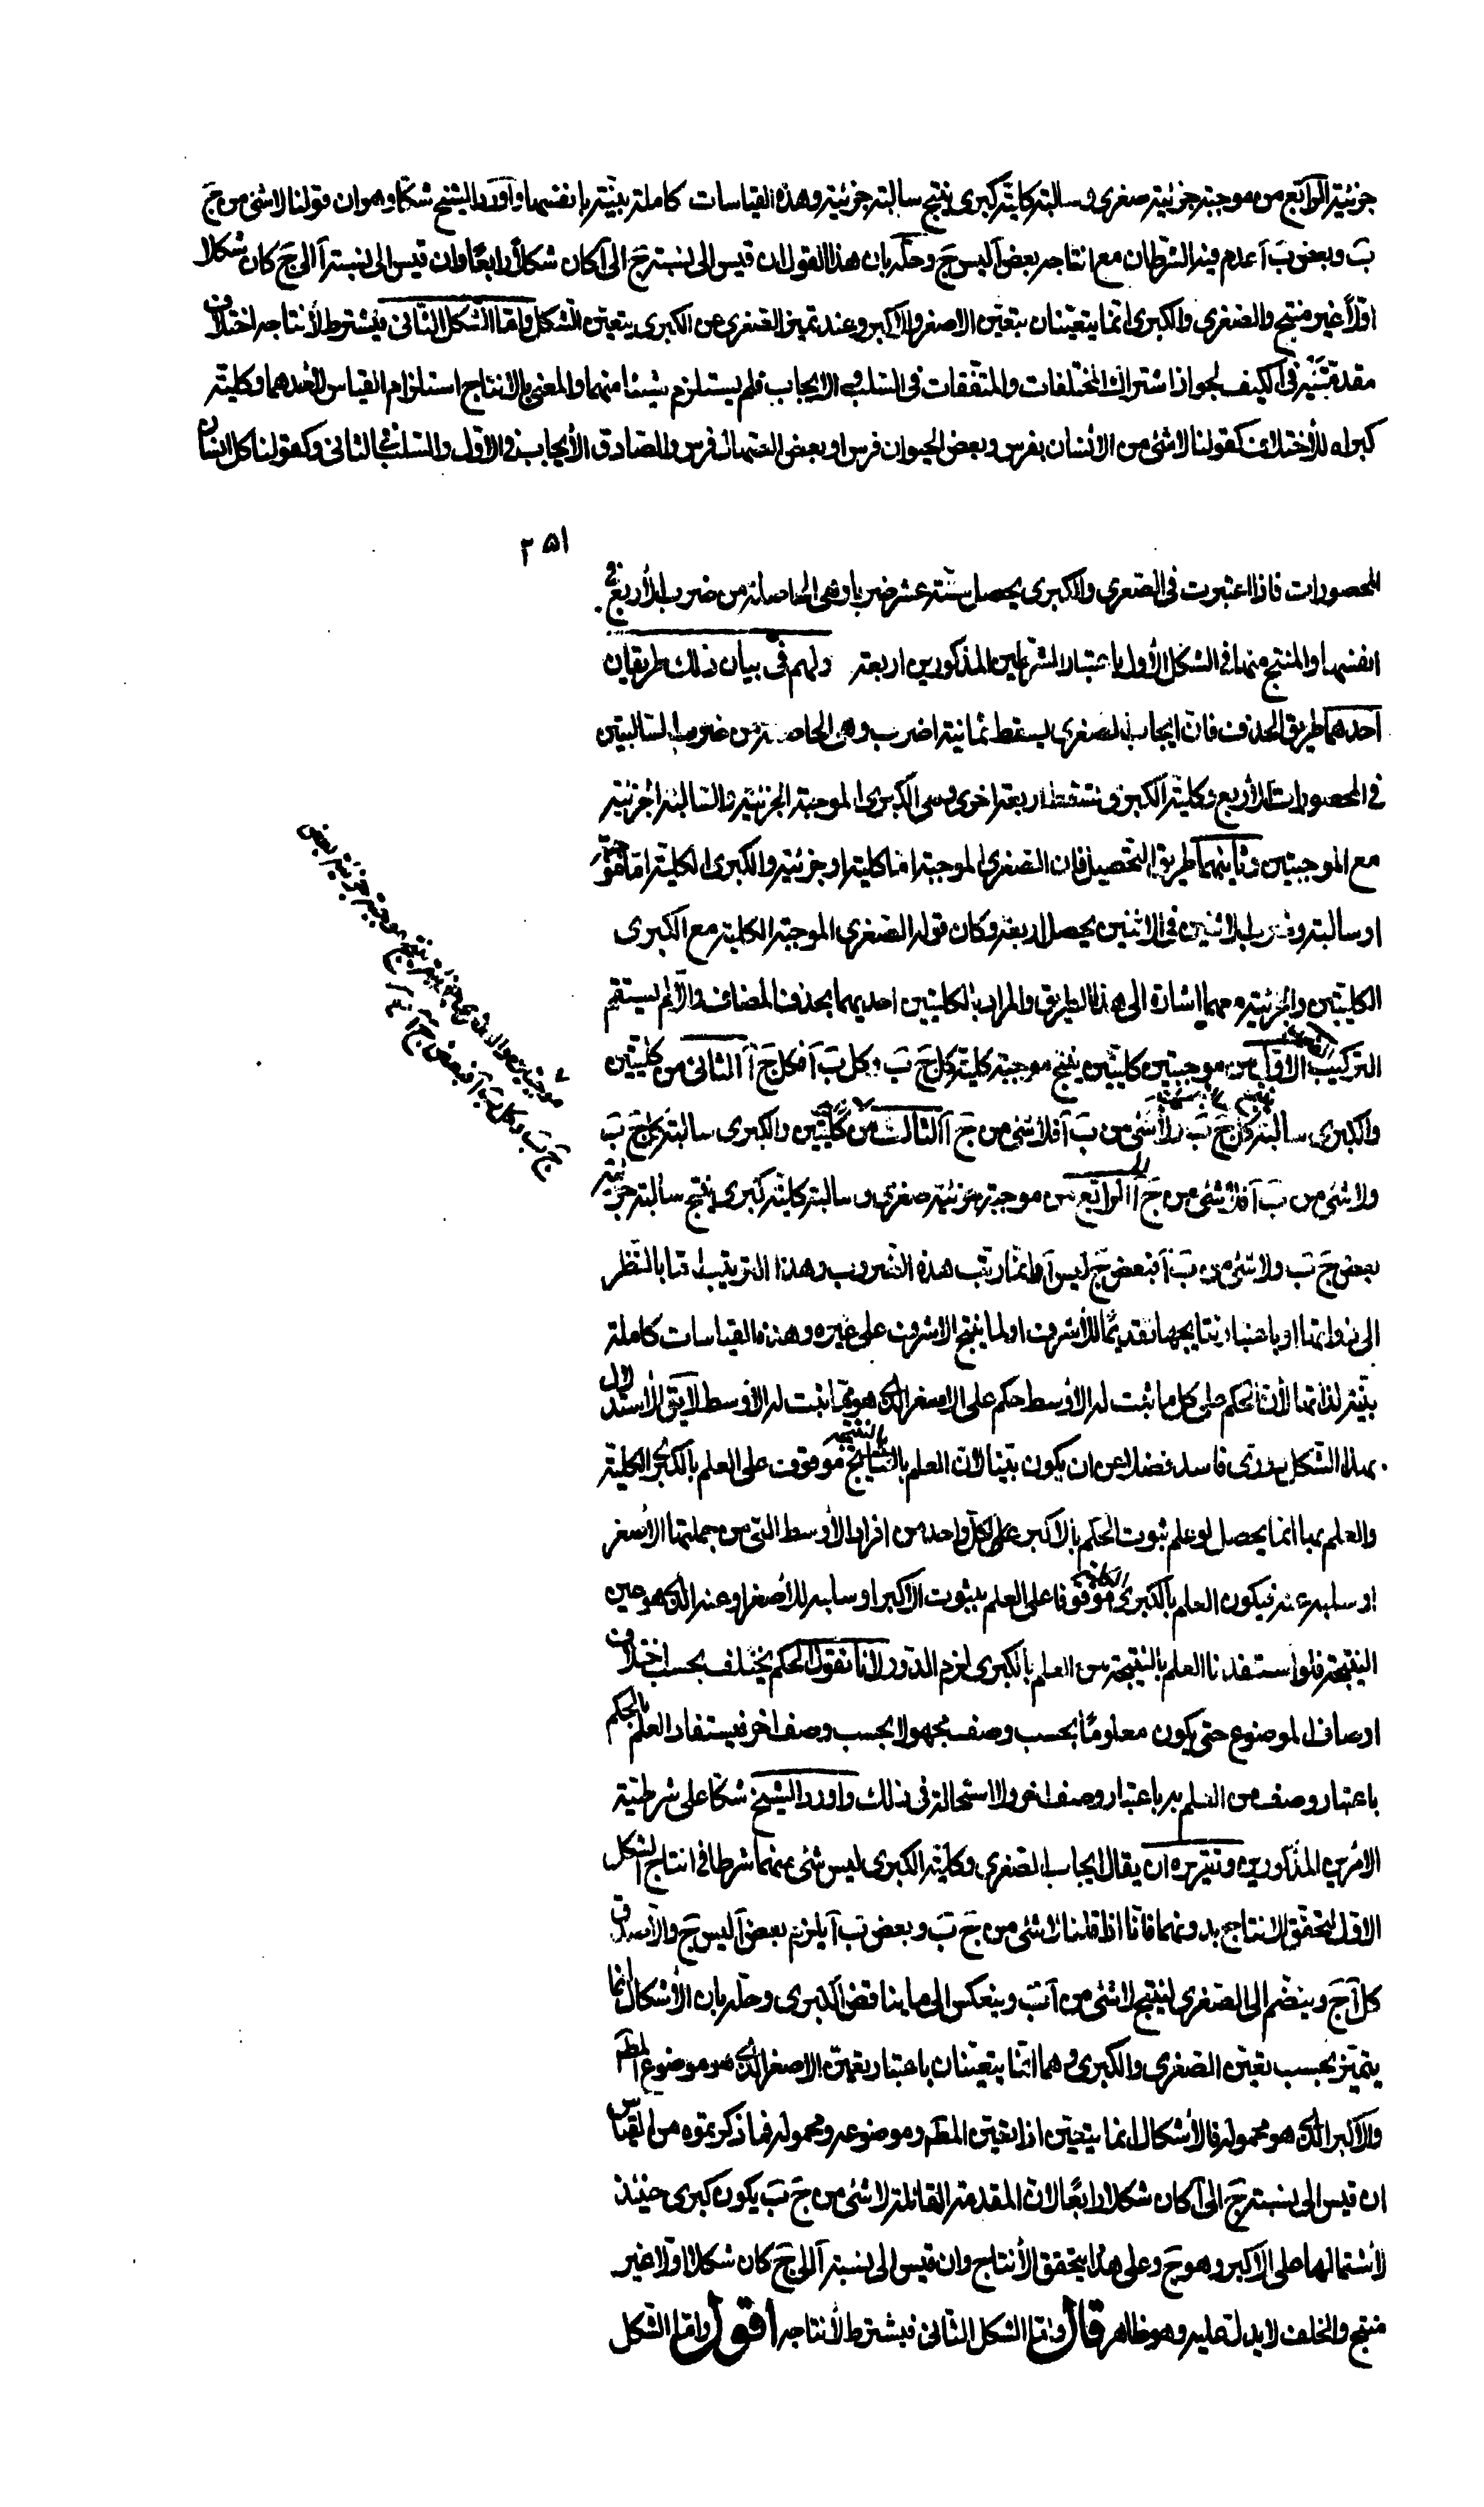 جزئیة الرابع من موجبة جزئیة صغرى و سالبة كلیة كبرى ینتج سالبة جزئیة وهذه القیاسات كاملة بینة بانفسها واورد الشیخ شكا وهوان قولنا لا شئ من جَ
بَ وبعض بَ آ عدم فیه الشرطان مع انتاجه بعض آ لیس جَ وحله بان هذا القول ان قیس الى نسبة جَ الى آ كان شكلاً رابعًا وان قیس الى نسبة آ الى جَ كان شكلا
اوّلاً غیر منتج والصغرى والكبرى انّما یتعیّنان بتعیّن الاصغر والاكبر وعند تمیز الصغرى عن الكبرى یتعیّن الشكل وامّا الشكل الثانى فیشترط لأنتاجه اختلاف
مقدمتیه فى الكیف لجواز اشتراك المختلفات والمتّفقات فى السلب والایجاب فلم یستلزم شیئا منهما والمعنى بالأنتاج استلزام القیاس لاحدهما وكلیة
كبراه للأختلاف كقولنا لا شئ من الأنسان بفرس وبعض الحیوان فرس او بعض الصهال فرس والصادق الأیجاب فى الاول والسلب فى الثانى وكقولنا كل انسان
٢٥١
المحصورات فاذا اعتبرت فى الصغرى والكبرى یحصل ستة عشر ضربا وهى الحاصلة من ضرب الأربع فى
انفسها والمنتج منها فى الشكل الأول باعتبار الشرطین المذكورین اربعة ولهم فى بیان ذلك طریقان
احدهما طریق الحذف فان ایجاب الصغرى یسقط ثمانیة اضرب وهى الحاصلة من ضرب السالبتین
فى المحصورات الأربع وكلیة الكبرى تسقط اربعة اخرى وهى الكبرى الموجبة الجزئیة والسالبة الجزئیة
مع الموجبتین وثانیهما طریق التحصیل فان الصغرى الموجبة اما كلیة او جزئیة والكبرى الكلیة اما موجبة
او سالبة وضرب الاثنین فى الاثنین یحصل اربعة وكان قوله الصغرى الموجبة الكلیة مع الكبرى
الكلیتین والجزئیة معهما اشارة الى هذا الطریق والمراد بالكلیتین احدیهما بحذف المضاف والا لم یستقم
التركیب الاول من موجبتین كلیتین ینتج موجبة كلیة كل جَ بَ وكل بَ آ فكل جَ آ الثانى من كلیتین
والكبرى سالبة كل جَ بَ ولا شئ من بَ آ فلا شئ من جَ آ الثالث من كلیتین والكبرى سالبة كل جَ بَ
ولا شئ من بَ آ فلا شئ من جَ آ الرابع من موجبة جزئیة صغرى و سالبة كلیة كبرى ینتج سالبة جزئیة
بعض جَ بَ ولا شئ من بَ آ فبعض جَ لیس آ وانما رتب هذه الضروب وهذا الترتیب اما بالنظر
الى ذواتها او باعتبار نتایجها تقدیمًا للأشرف او لما ینتج الاشرف على غیره وهذه القیاسات كاملة
بیّنة لذاتها لأن الحكم على كل ما ثبت له الأوسط حكم على الاصغر الذى هو مما ثبت له الأوسط لا یق الأستدلال
بهذا الشكل دورى فاسد فضلا عن ان یكون بینا لان العلم بالنتیجة موقوف على العلم بالكبرى الكلیة
والعلم بها انما یحصل لو علم ثبوت الحكم بالاكبر على كل واحد من افراد الأوسط التى من جملتها الأصغر
او سلبه عنه فیكون العلم بالكبرى الكلیة موقوفا على العلم بثبوت الاكبر او سلبه للأصغر او عنه الذى هو عین
النتیجة فلو استفدنا العلم بالنتیجة من العلم بالكبرى لزم الدور لأنا نقول الحكم یختلف بحسب اختلاف
اوصاف الموضوع حتى یكون معلومًا بحسب وصف مجهولا بحسب وصف اخر فیستفاد العلم بالحكم
باعتبار وصف من العلم به باعتبار وصف اخر ولا استحالة فى ذلك واورد الشیخ شكا على شرطیة
الامرین المذكورین وتقریره ان یقال ایجاب الصغرى وكلیة الكبرى لیس شئ منهما شرطا فى انتاج الشكل
الاول لتحقق الانتاج بدونهما فانا اذا قلنا لا شئ من جَ بَ وبعض بَ آ یلزم بعض آ لیس جَ والا لصدق
كل آ جَ وینضم الى الصغرى لینتج لا شئ من آ بَ وینعكس الى ما یناقض الكبرى وحله بان الأشكال انما
یتمیز بحسب تعیّن الصغرى والكبرى وهما انما یتعیّنان باعتبار تعیّن الاصغر الذى هو موضوع المط
والاكبر الذى هو محموله فالأشكال انما یتعیّن اذا تعیّن المط وموضوعه ومحموله فما ذكرتموه من القیاس
ان قیس الى نسبة جَ الى آ كان شكلا رابعًا لان المقدمة القائلة لا شئ من جَ بَ یكون كبرى حینئذ
لأشتمالها على الاكبر وهو جَ وعلى هذا یتحقق الأنتاج وان قیس الى نسبة آ الى جَ كان شكلا اولا غیر
منتج والخلف لا یدل علیه وهو ظاهر قال واما الشكل الثانى فیشترط لأنتاجه اقول واما الشكل